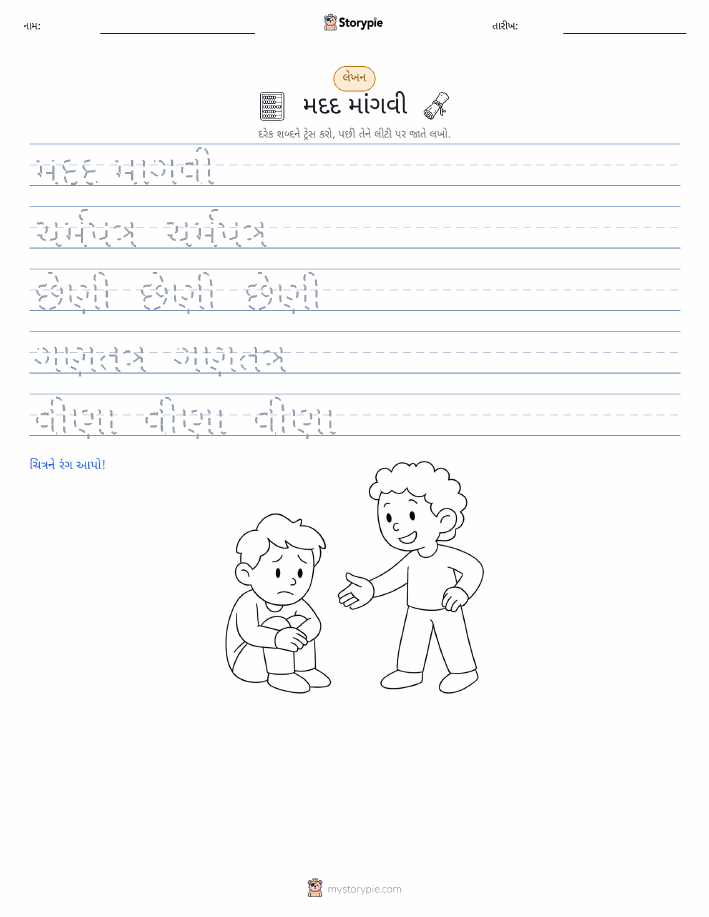 નામ:
Storypie
તારીખ:
લેખન
મદદ માંગવી
દરેક શબ્દને ટ્રેસ કરો, પછી તેને લીટી પર જાતે લખો.
મદદ માગવી
ચર્મપત્ર ચર્મપત્ર
છેણી છેણી છેણી
ગણતંત્ર ગણતંત્ર
વીણા વીણા વીણા
ચિત્રને રંગ આપો!
mystorypie.com